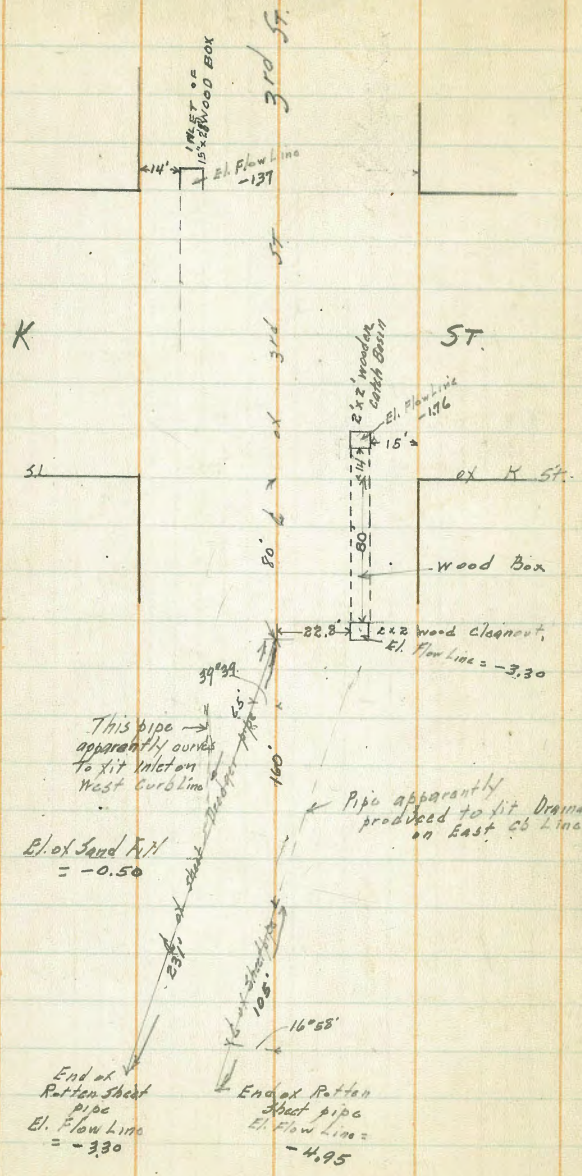 3rd ST.
INLET OF
15"x28" WOOD BOX
14'
El. Flow Line
-1.37
ST
3rd
K
ST.
2'x2' Wooden
Catch Basin
El. Flow Line
-1.76
15'
14'
S.L.
of K ST.
of
80'
80'
Wood Box
22.8'
2x2 Wood Cleanout,
El. Flow Line = -3.30
39°39'
65'
This pipe
apparently curves
To fit Inlet on
West Curb Line
Dredger pipe
160'
Pipe apparently
produced to fit Drain
on East Cb Line
El. of Sand Fill
= -0.50
of Sheet
231'
of Sheet pipe
105'
16°58'
End of
Rotten Sheet
pipe
El. Flow Line
= -3.30
End of Rotten
Sheet pipe
El. Flow Line =
-4.95